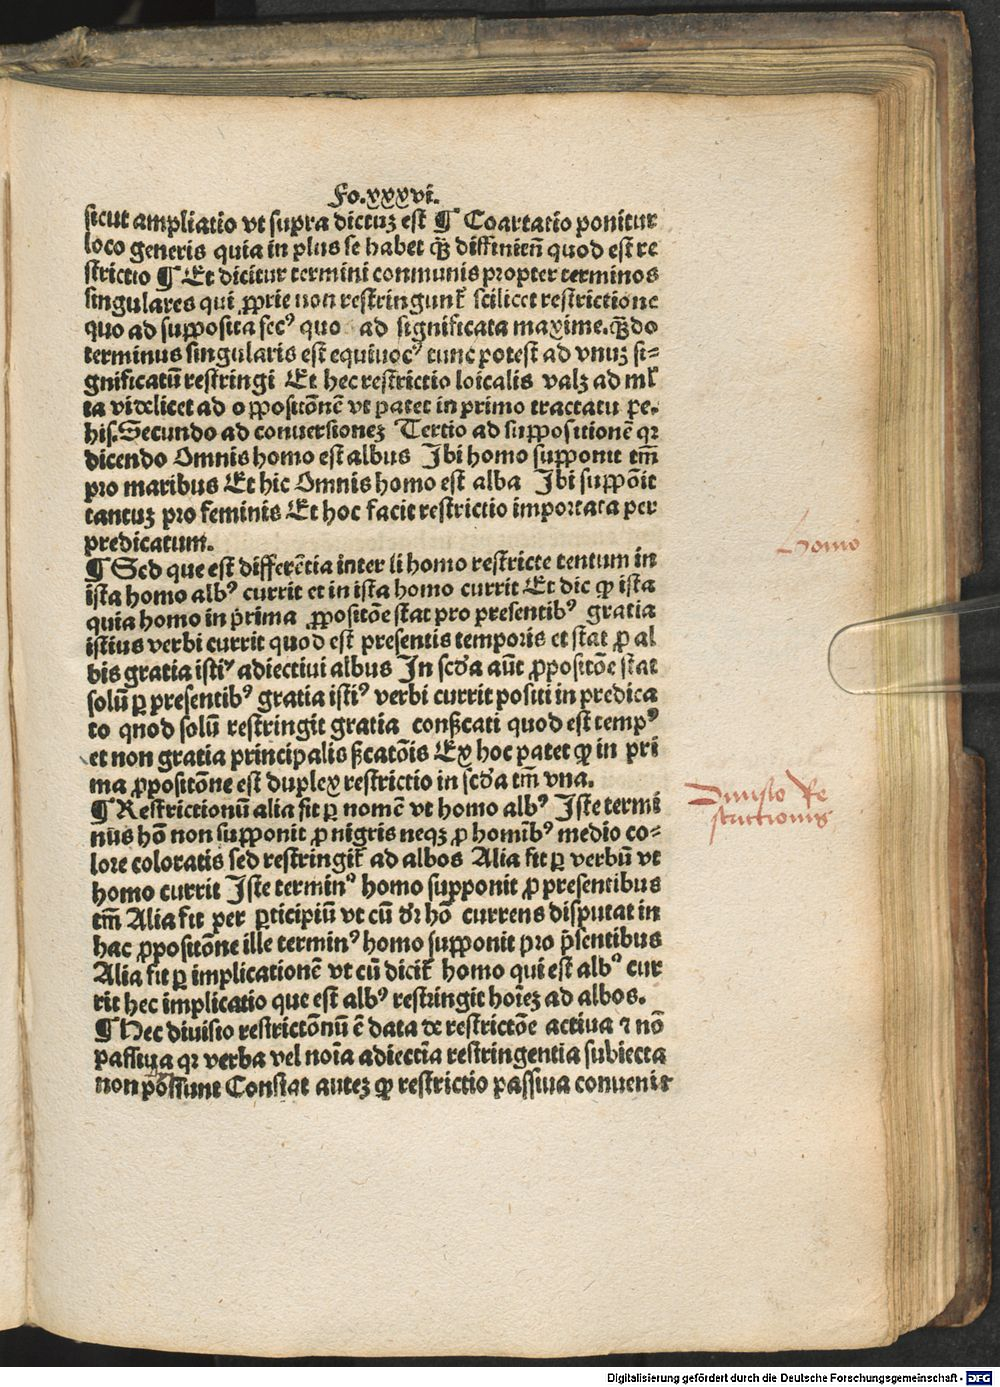 Fo.xxxvi.
sicut ampliatio vt supra dictuz est ¶ Coartatio ponitur
loco generis quia in plus se habet qȝ̄ diffinien̄ quod est re
strictio ¶ Et dicitur termini communis propter terminos
singulares qui ꝓprie non restringunt᷑ scilicet restrictione
quo ad supposita secꝰ quo ad significata maxime. qȝ̄do
terminus singularis est equiuocꝰ tunc potest ad vnuz si⸗
gnificatū restringi Et hec restrictio loicalis valꝫ ad ml᷑
ta videlicet ad oppositōnē vt patet in primo tractatu pe.
his. Secundo ad conuersionez Tertio ad suppositionē qꝛ
dicendo Omnis homo est albus Ibi homo supponit tm̄
pro maribus Et hic Omnis homo est alba Ibi suppōit
tantuz pro feminis Et hoc facit restrictio importata per
predicatum.
¶ Sed que est differētia inter li homo restricte tentum in
ista homo albꝰ currit et in ista homo currit Et dic ꝙ ista
quia homo in prima ꝓpositōe stat pro presentibꝰ gratia
istius verbi currit quod est presentis temporis et stat ꝓ al
bis gratia istiꝰ adiectiui albus In scd'a aūt ꝓpositōe stat
solū ꝑ presentibꝰ gratia istiꝰ verbi currit positi in predica
to qnod solū restringit gratia conßcati quod est tempꝰ
et non gratia principalis ßcatōis Ex hoc patet ꝙ in pri
ma ꝓpositōne est duplex restrictio in scd'a tm̄ vna.
¶ Restrictionū alia fit ꝑ nomē vt homo albꝰ Iste termi
nus hō non supponit ꝓ nigris neqꝫ ꝓ homībꝰ medio co⸗
lore coloratis sed restringit᷑ ad albos Alia fit ꝑ verbū vt
homo currit Iste terminꝰ homo supponit ꝓ presentibus
tm̄ Alia fit per ꝑticipiū vt cū dꝛ hō currens disputat in
hac ꝓpositōne ille terminꝰ homo supponit pro p̄sentibus
Alia fit ꝑ implicationē vt cū dicit᷑ homo qui est albꝰ cur
rit hec implicatio que est albꝰ restringit hoīez ad albos.
¶ Hec diuisio restrictōnū ē data de restrictōe actiua ⁊ nō
passiua qꝛ verba vel noīa adiectīa restringentia subiecta
non pōssunt Constat autez ꝙ restrictio passiua conuenit
Homo
Diuisio Re
strictionis
Digitalisierung gefördert durch die Deutsche Forschungsgemeinschaft - DFG